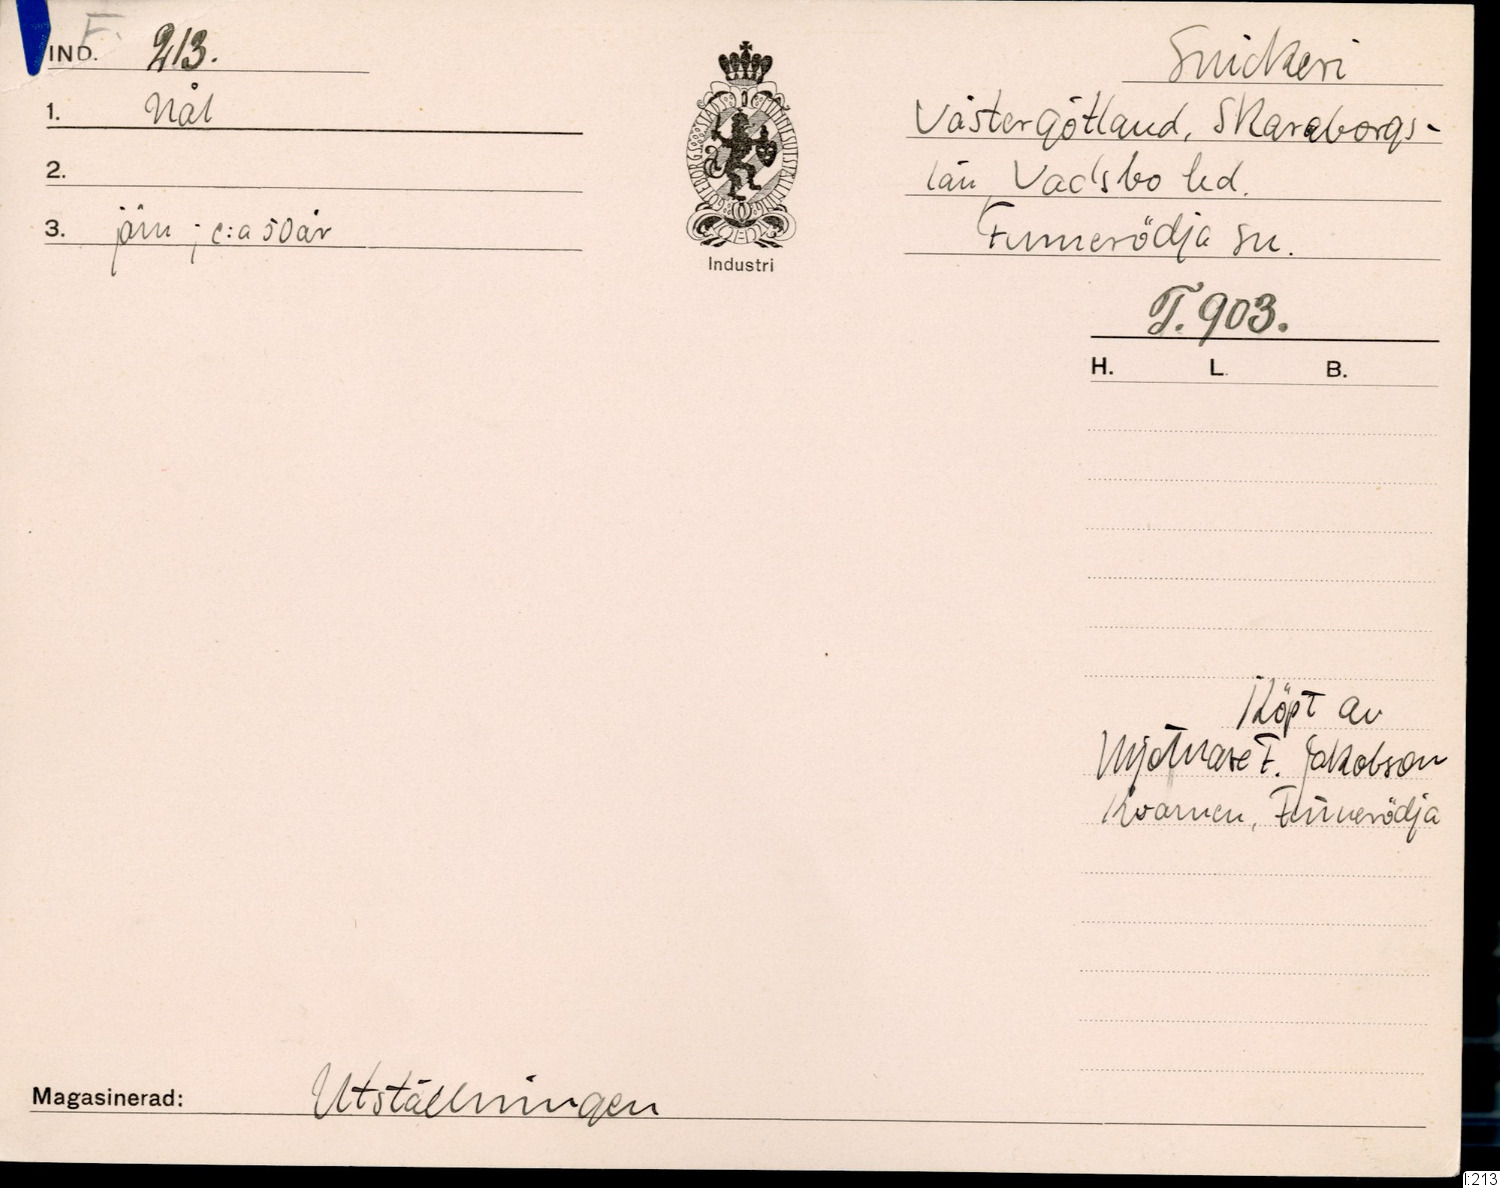 F.
IND. 213.
1. Nål
2.
3. järn ; c:a 50 år
GÖTEBORGS STADS MINNESUTSTÄLLNING
Industri
Snickeri
Västergötland, Skaraborgs-
län Vadsbo hd.
Finnerödja sn.
T. 903.
H. L. B.
Köpt av
Mjölnare F. Jakobson
Kvarnen, Finnerödja
Magasinerad: Utställningen
I:213